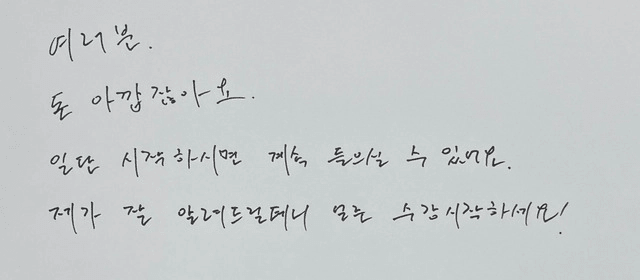 여러분.
돈 아깝잖아요.
일단 시작하시면 계속 들으실 수 있어요.
제가 잘 알려드릴테니 얼른 수강시작하세요!